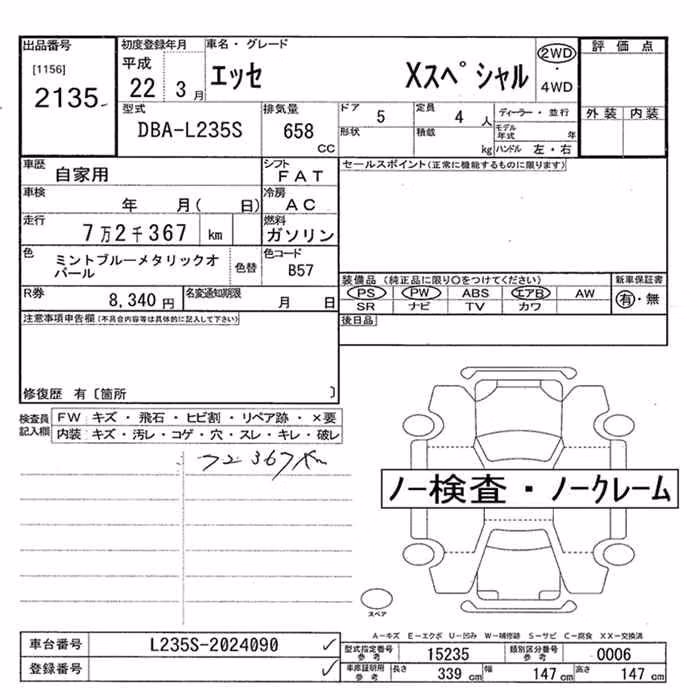 出品番号
[1156]
2135
初度登録年月
平成
22 3月
車名・グレード
エッセ Xスペシャル
2WD
・
4WD
評価点
外装 内装
型式
DBA-L235S
排気量
658
CC
ドア
5
定員
4人
形状
積載
kg
ディーラー・並行
モデル年式 年
ハンドル 左・右
車歴
自家用
シフト
FAT
車検
年 月( 日)
冷房
AC
走行
7万2千367 km
燃料
ガソリン
色
ミントブルーメタリックオ
パール
色替
色コード
B57
R券
8,340円
名変通知期限
月 日
セールスポイント(正常に機能するものに限ります)
装備品(純正品に限り○をつけてください)
PS PW ABS エアB AW
SR ナビ TV カワ
新車保証書
有・無
後日品
注意事項申告欄(不具合内容等は具体的に記入して下さい)
修復歴 有〔箇所 〕
検査員
記入欄
FW キズ・飛石・ヒビ割・リペア跡・×要
内装 キズ・汚レ・コゲ・穴・スレ・キレ・破レ
72367Km
ノー検査・ノークレーム
スペア
A-キズ E-エクボ U-凹み W-補修跡 S-サビ C-腐食 XX-交換済
車台番号 L235S-2024090 ✓
登録番号 ✓
型式指定番号
参考
15235
類別区分番号
参考
0006
車庫証明用
参考
長さ 339 cm 幅 147 cm 高さ 147 cm